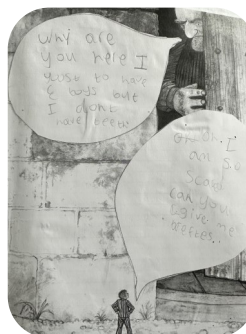 why are
you here I
used to have
6 boys but
I don't
have teeth
I
am so
scard
can you
give me